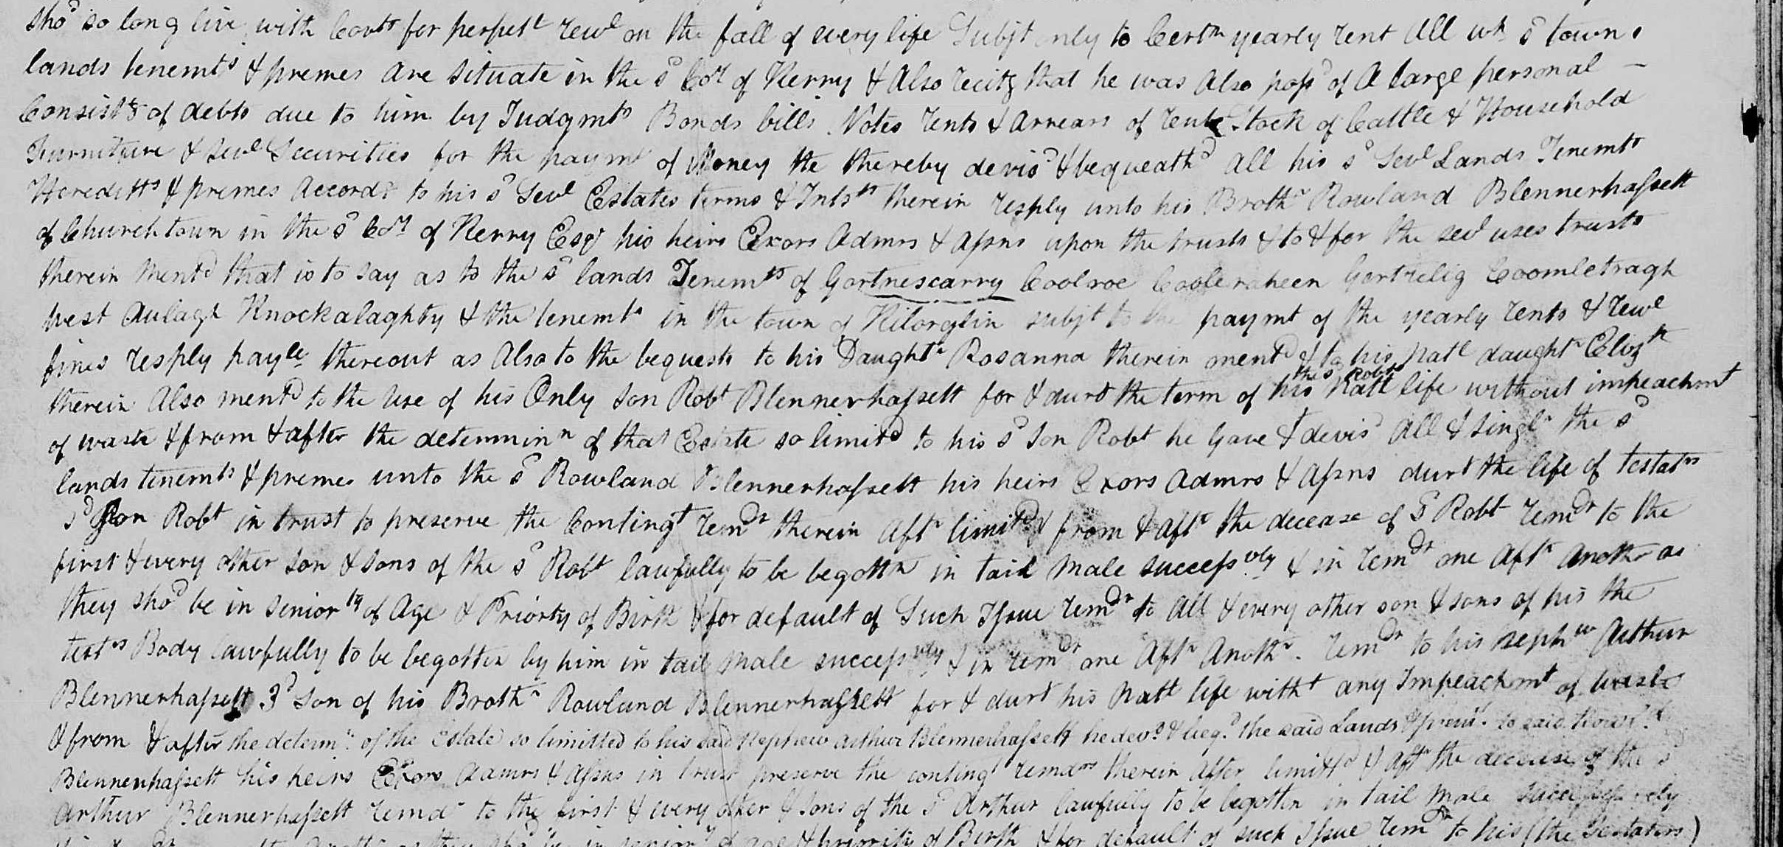 sho^d so long live with Cov^ts for perpet^l rew^l on the fall of every life Subj^t only to Cert^n yearly rent All w^h s^d towns
lands tenem^ts & premes are situate in the s^d Co^ty of Kerry & Also recit^g that he was also poss^d of a large personal —
Consist^g of debts due to him by Judgm^ts Bonds bills Notes rents & arrears of rent Stock of Cattle & Household
Furniture & sev^l Securities for the paym^t of Money He thereby devis^d & bequeath^d All his s^d Sev^l Lands Tenem^ts
Heredit^ts & premes Accord^g to his s^d Sev^l Estates terms & Ints^ts therein resply unto his Broth^r Rowland Blennerhassett
of Churchtown in the s^d Co^ty of Kerry Esq^r his heirs Exors Admrs & Assns upon the trusts & to & for the sev^l uses trusts
therein ment^d that is to say as to the s^d lands Tenem^ts of Gortnescarry Coolroe Cooleraheen Gortrelig Coomletragh
west Aulagh Knockalaghty & the tenem^ts in the town of Kilorglin subj^t to the paym^t of the yearly rents & rew^l
fines resply pay^le thereout as Also to the bequests to his Daught^r Rosanna therein ment^d & to his nat^l daught^r Eliz^th
therein Also ment^d to the Use of his Only son Rob^t Blennerhassett for & dur^g the term of his the s^d Rob^ts Nat^l life without impeachm^t
of waste & from & after the determin^n of that Estate so limit^d to his s^d Son Rob^t he Gave & devis^d All & Sing^lr the s^d
lands tenem^ts & premes unto the s^d Rowland Blennerhassett his heirs Exors Admrs & Assns dur^g the life of testat^rs
s^d Son Rob^t in trust to preserve the Conting^t rem^drs therein aft^r limit^d & from & aft^r the decease of s^d Rob^t rem^dr to the
first & every other son & sons of the s^d Rob^t lawfully to be begott^n in tail Male success^vly & in rem^dr one aft^r anoth^r as
they sho^d be in senior^ty of Age & Priority of Birth & for default of Such Issue rem^dr to All & every other son & sons of his the
test^rs Body lawfully to be begotten by him in tail male success^vly & in rem^dr one Aft^r Anoth^r. rem^dr to his neph^ew Arthur
Blennerhassett 3^d Son of his Broth^r Rowland Blennerhassett for & dur^g his Nat^l life with^t any Impeachm^t of waste
& from & after the determ^n of the Estate so limitted to his said Nephew Arthur Blennerhassett he dev^d & beq^d the said Lands & prem^s to said Rowl^d
Blennerhassett his heirs Exors Admrs & Assns in trust preserve the conting^t remdrs therein after limitt^d & aft^r the decease of the s^d
Arthur Blennerhassett remd^r to the first & every other & sons of the s^d Arthur lawfully to be begotten in tail Male successively
in senior^ty of age & priority of Birth & for default of such Issue rem^dr to his (the Testators)